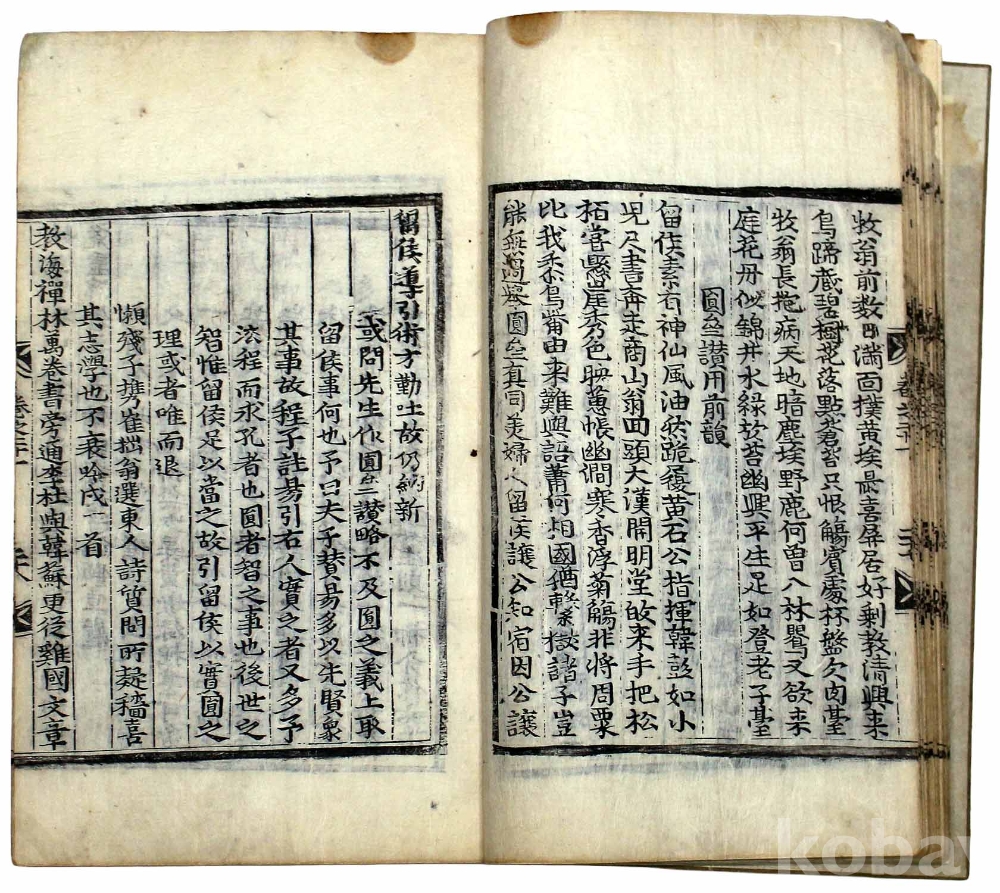 牧翁前数日滿面撲黄埃最喜屏居好剩教清興来
鳥蹄蔵碧樹花落點蒼苔只恨觴賓處杯盤欠肉臺
牧翁長抱病天地暗塵埃野鹿何曽入林鸎又欲来
庭花丹似錦井水緑於苔幽興平生足如登老子臺
圓圶讃用前韻
留侯素石神仙風油然跪履黄石公指揮韓彭如小
児尺書奔走商山翁回頭大漢開明堂故来手把松
栢嘗懸崖秀色映蕙帳幽澗寒香浮菊觴非将周粟
比我柰鳥喾由来難與語蕭何相國猶繫獄諸子豈
能無過擧圓圶真同美婦人留侯讓公知宿因公讓
留侯導引術才勤吐故仍納新
或問先生作圓圶讃略不及圓之義上取
留侯事何也予曰夫子賛易多以先賢象
其事故程子註易引古人實之者又多予
法程而永孔者也圓者智之事也後世之
智惟留侯足以當之故引留侯以實圓之
理或者唯而退
懶殘子携崔拙翁選東人詩質問所疑穡喜
其志學也不衰吟成一首
教海禪林萬卷書旁通李杜與韓蘇更從雞國文章
卷之
koba